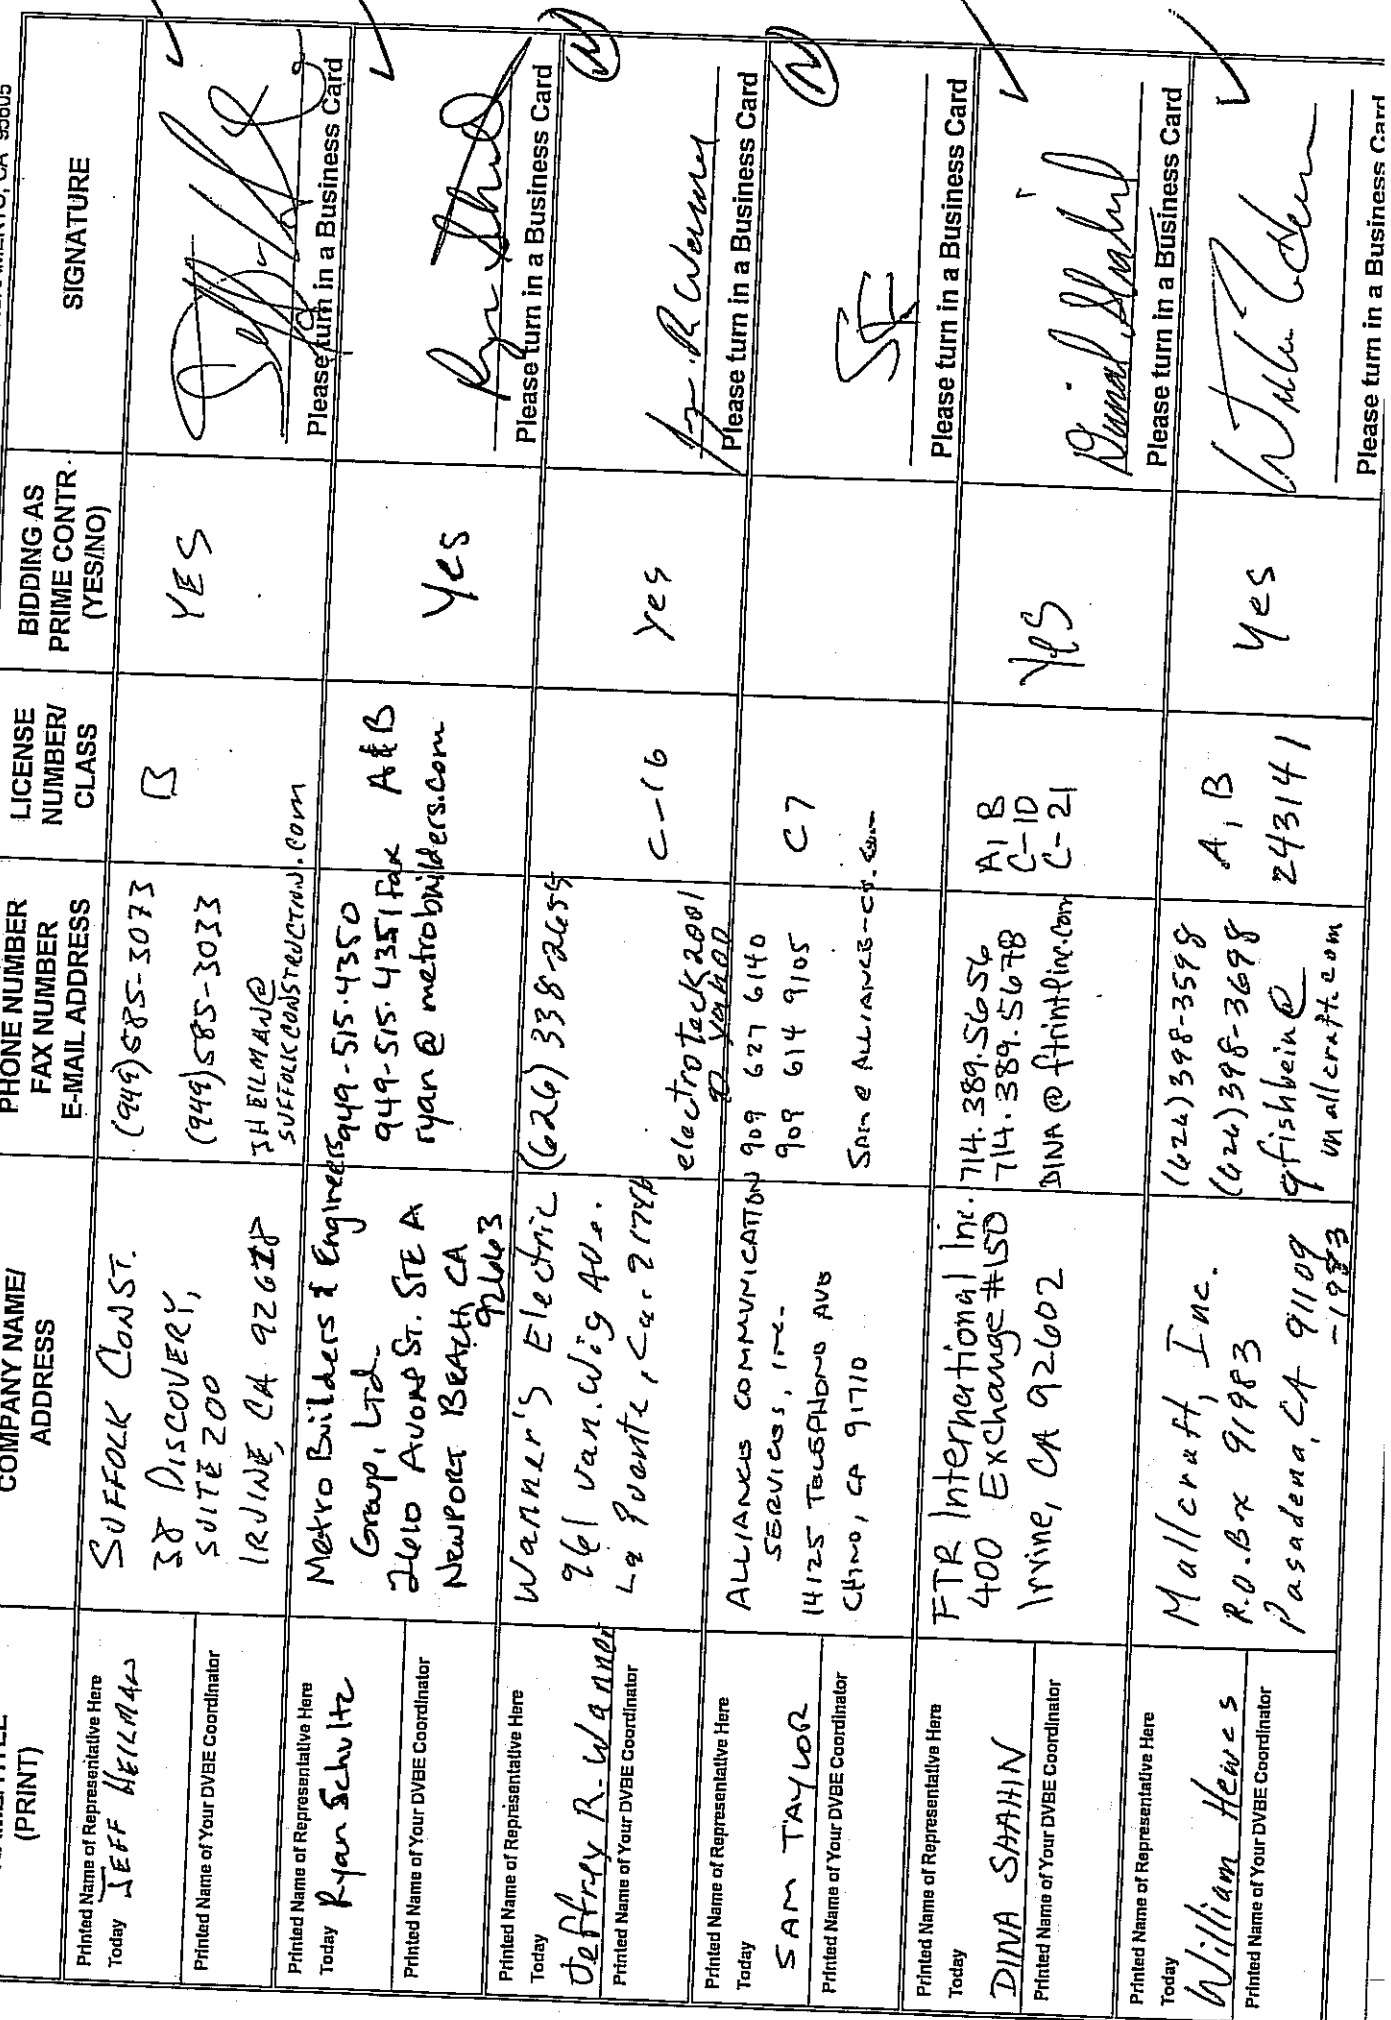 SACRAMENTO, CA 95605
(PRINT)
COMPANY NAME/
ADDRESS
PHONE NUMBER
FAX NUMBER
E-MAIL ADDRESS
LICENSE
NUMBER/
CLASS
BIDDING AS
PRIME CONTR.
(YES/NO)
SIGNATURE
Printed Name of Representative Here
Today JEFF HEILMAN
Printed Name of Your DVBE Coordinator
SUFFOLK CONST.
38 DISCOVERY,
SUITE 200
IRVINE, CA 92618
(949) 585-3073
(949) 585-3033
JHEILMAN@
SUFFOLKCONSTRUCTION.COM
B
YES
Please turn in a Business Card
Printed Name of Representative Here
Today Ryan Schultz
Printed Name of Your DVBE Coordinator
Metro Builders & Engineers
Group, Ltd.
2610 AVON ST. STE A
NEWPORT BEACH, CA
92663
949-515-4350
949-515-4351 fax
ryan@metrobuilders.com
A&B
Yes
Please turn in a Business Card
Printed Name of Representative Here
Today
Jeffrey R. Wanner
Printed Name of Your DVBE Coordinator
Wanner's Electric
961 Van. Wig Ave.
La Puente, Ca. 91746
(626) 338-2655
electroteck2001
@ yahoo
C-16
Yes
Please turn in a Business Card
N
Printed Name of Representative Here
Today
SAM TAYLOR
Printed Name of Your DVBE Coordinator
ALLIANCE COMMUNICATION
SERVICES, INC.
14125 TELEPHONE AVE
CHINO, CA 91710
909 627 6140
909 614 9105
SAM@ALLIANCE-CS.com
C7
SE
Please turn in a Business Card
N
Printed Name of Representative Here
Today
DINA SHAHIN
Printed Name of Your DVBE Coordinator
FTR International Inc.
400 Exchange #150
Irvine, CA 92602
714.389.5656
714.389.5678
DINA@ftrintlinc.com
A, B
C-10
C-21
Yes
Please turn in a Business Card
Printed Name of Representative Here
Today
William Hewes
Printed Name of Your DVBE Coordinator
Mallcraft, Inc.
P.O. Box 91983
Pasadena, CA 91109
-1983
(626) 398-3598
(626) 398-3698
gfishbein@
mallcraft.com
A, B
243141
Yes
Please turn in a Business Card